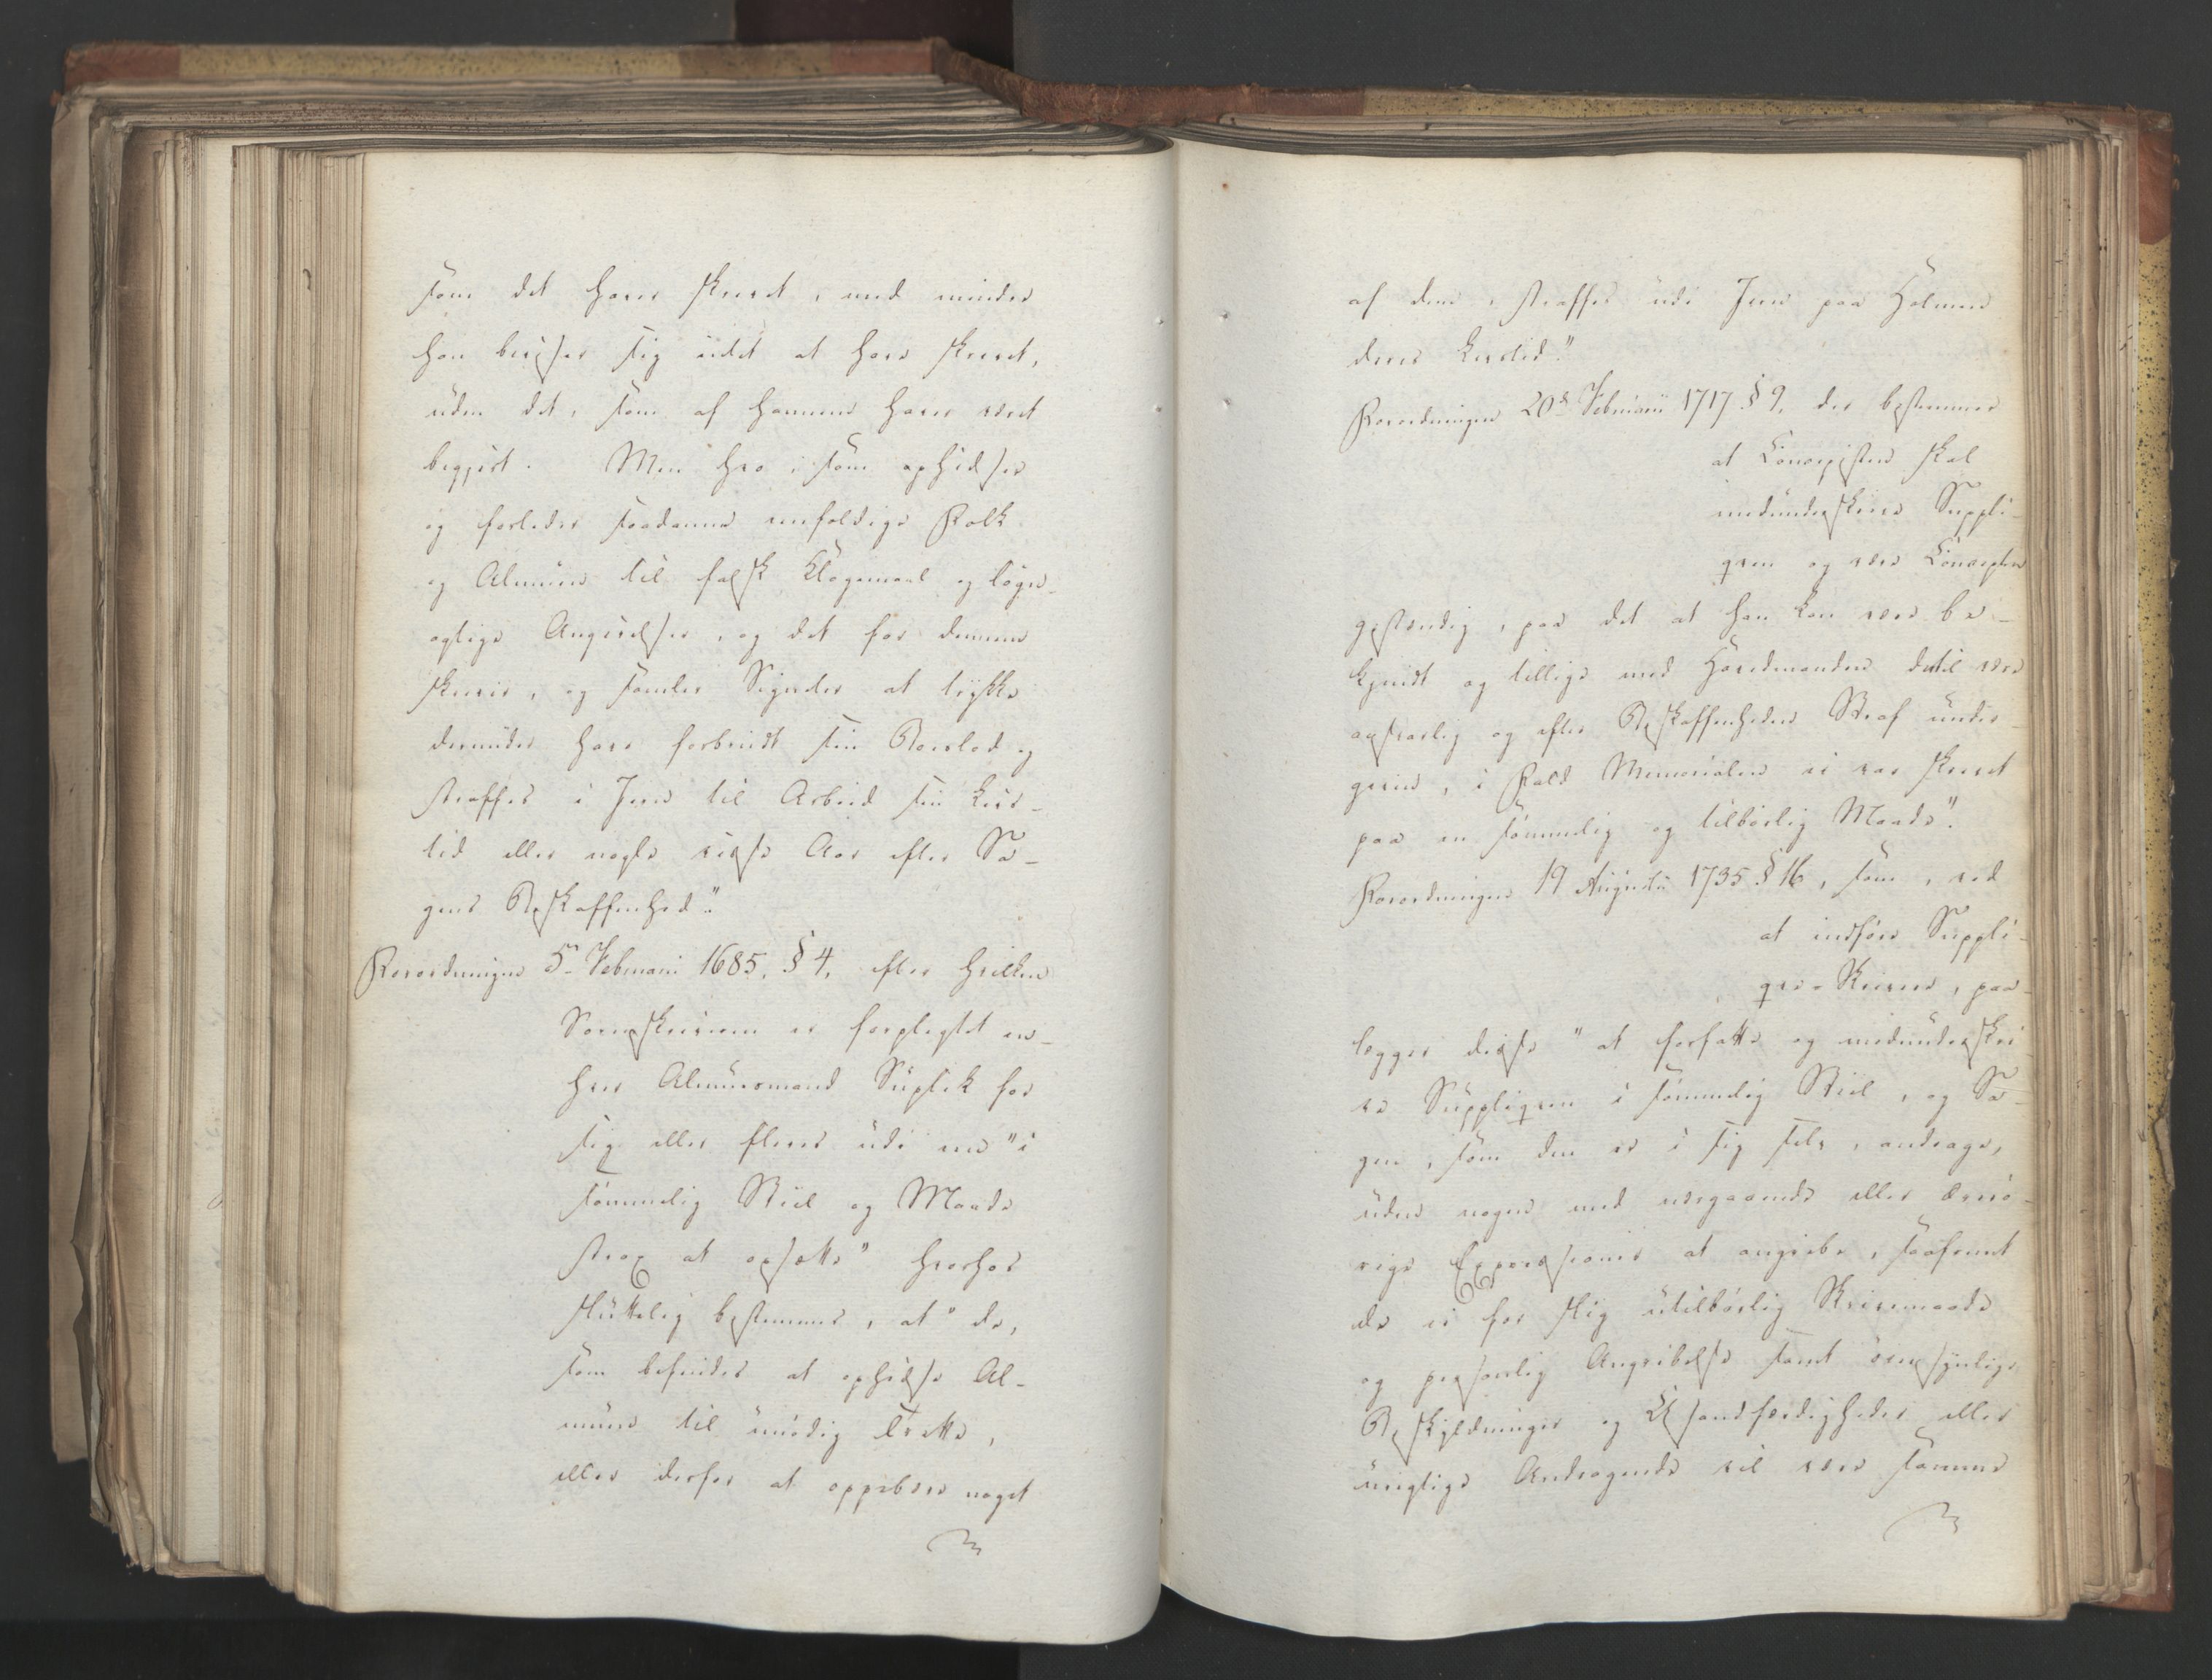 som det haver skrevet, med mindre
han beviiser sig intet at have skrevet,
uden det, som af hannem haver været
begjert. Men hvo, som ophidser
og forleder saadanne eenfoldige Folk
og Almue til falsk Klagemaal og løgn-
agtige Angivelser, og det for dennem
skriver, og samler Signeter at trykke
derunder have forbrudt sin Boeslod og
straffes i Jern til Arbeid sin Livs-
tid eller nogle visse Aar efter Sa-
gens Beskaffenhed."
Forordningen 5 Februarii 1685. § 4, efter hvilken
Sorenskriveren er forpligtet en-
hver Almuesmand Suplik for
sig eller fleere udi een "i
sømmelig Stiil og Maade
strax at opsætte" hvorhos
sluttelig bestemmes, at "de,
som befindes at ophidse Al-
muen til unødig Trætte,
eller derfor at oppebære noget
af dem, straffes udi Jern paa Holmen
deres Livstid."
Forordningen 20de Februarii 1717 § 9, der bestemmer
at Concipisten skal
medunderskrive Suppli-
qven og være Concepten
gestændig, paa det at han kan være be-
kjendt og tillige med Hovedmanden dertil være
ansvarlig og efter Beskaffenheden Straf under-
given, i Fald Memorialen ei var skrevet
paa en sømmelig og tilbørlig Maade".
Forordningen 19 Augusti 1735 § 16, som, ved
at indføre Suppli-
qve-Skrivere, paa-
lægger disse "at forfatte og medunderskri
ve Suppliqven i sømmelig Stiil, og Sa-
gen, som den er i sig selv, andrage,
uden nogen med nærgaaende eller ærerø-
rige Expressioner at angribe, saafremt
de ei for slig utilbørlig Skrivemaade
og personlig Angribelse samt øiensynlige
Beskyldninger og Usandfærdigheder eller
urigtige Andragende vil være samme